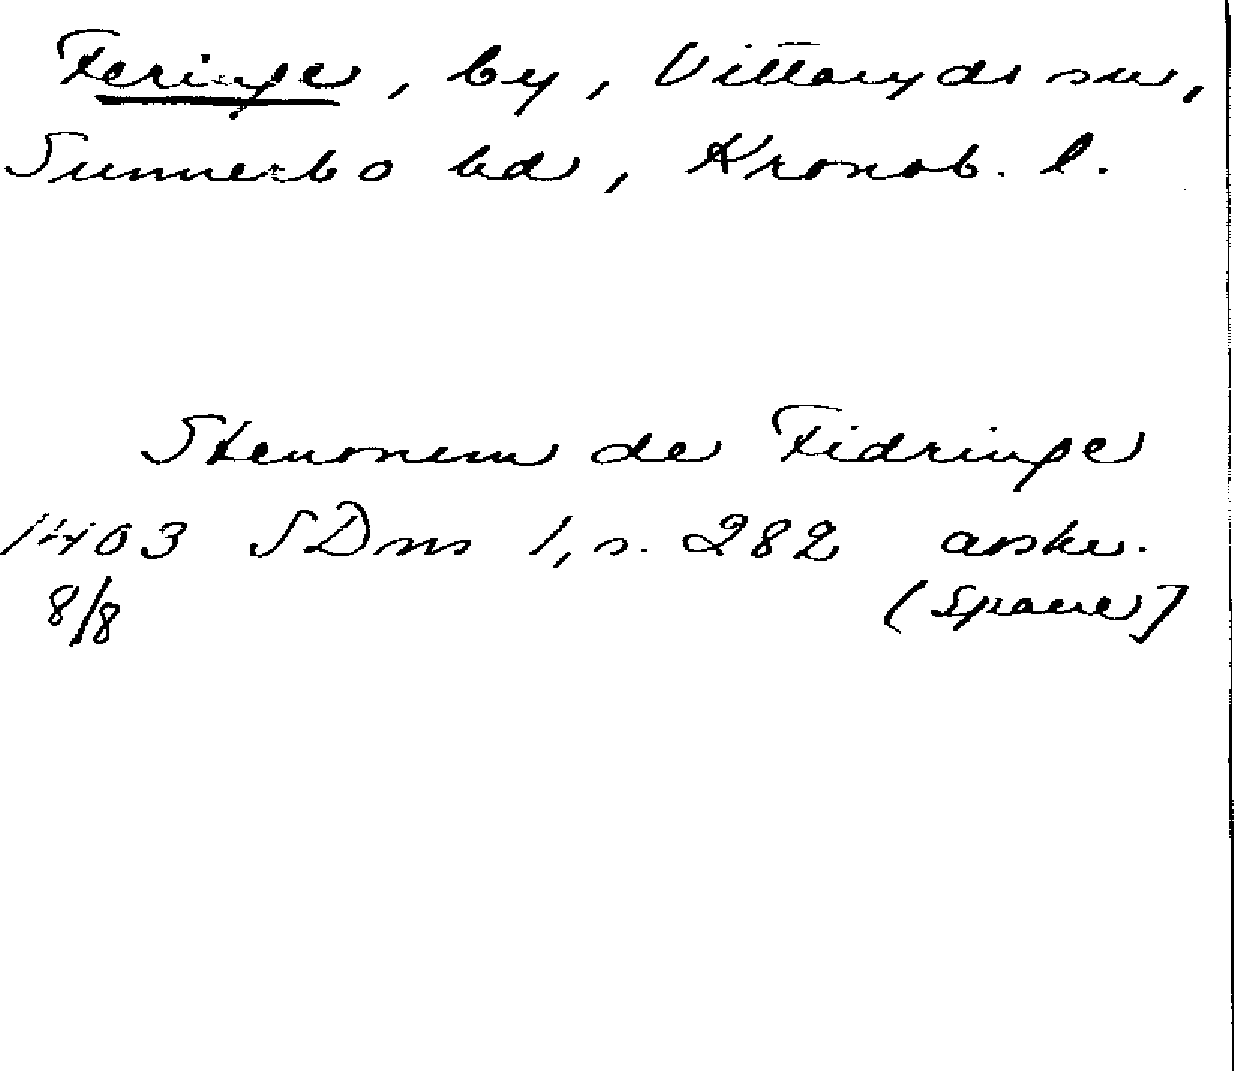 Feringe, by, Vittaryds sn,
Sunnerbo hd, Kronob. l.
Stenonem de Fidringe
1403 SDns 1, s. 282 avskr.
8/8